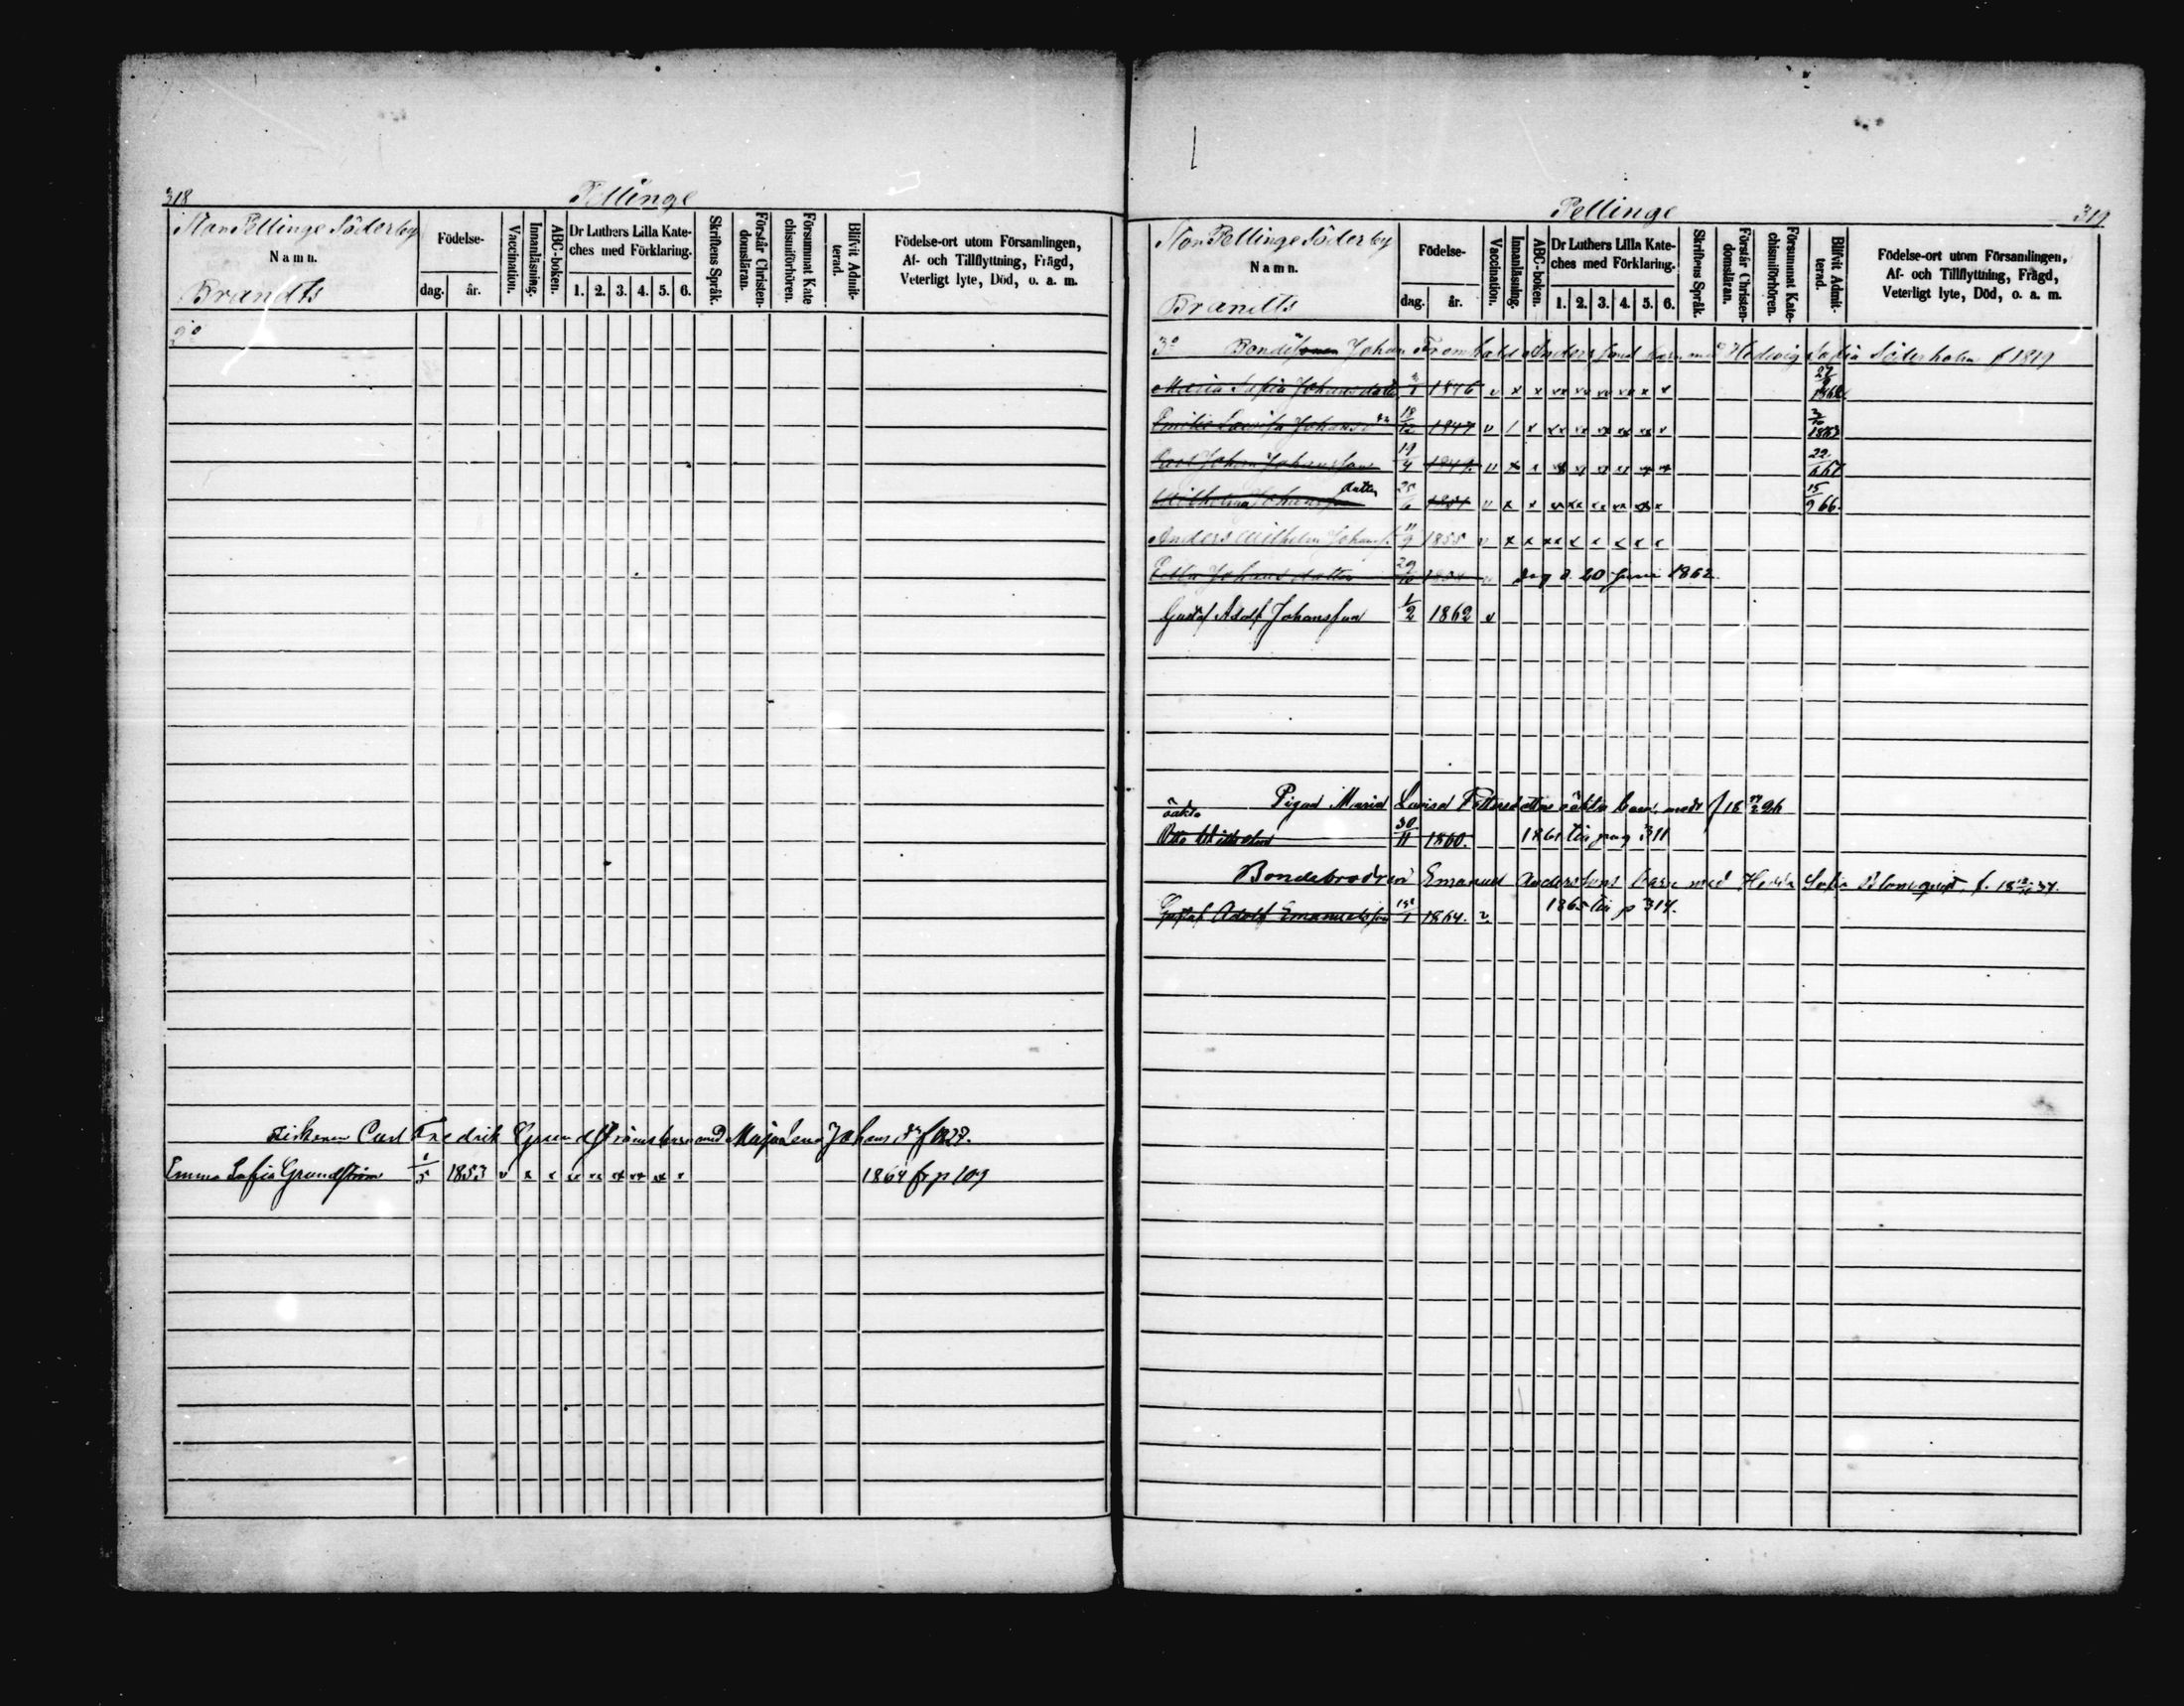 318
Pellinge
Stor Pellinge Söderby
Namn.
Brandts
Födelse-
dag. år.
Vaccination.
Innanläsning.
ABC-boken.
Dr Luthers Lilla Kate-
ches med Förklaring.
1. 2. 3. 4. 5. 6.
Skriftens Språk.
Förstår Christen-
domsläran.
Försummat Kate
chismiförhören.
Blifvit Admit-
terad.
Födelse-ort utom Församlingen,
Af- och Tillflyttning, Frägd,
Veterligt lyte, Död, o. a. m.
2o
Fiskaren Carl Fredrik Grundströms barn med Maja Lena Johans dr f 1827.
Emma Sofia Grundström 1/5 1853 v x x xx xx xx xx xx x 1864 fr p 109
Pellinge
319
Stor Pellinge Söderby
Namn.
Brandts
Födelse-
dag. år.
Vaccination.
Innanläsning.
ABC-boken.
Dr Luthers Lilla Kate-
ches med Förklaring.
1. 2. 3. 4. 5. 6.
Skriftens Språk.
Förstår Christen-
domsläran.
Försummat Kate-
chismiförhören.
Blifvit Admit-
terad.
Födelse-ort utom Församlingen,
Af- och Tillflyttning, Frägd,
Veterligt lyte, Död, o. a. m.
3o Bonde Johan Andersson barn med Hedvig Sofia Söderholm f 1819
Maria Sofia Johansdotter 1846 v x x xx xx xx xx x x 1862
Emilie Lovisa Johans dr 18/12 1847 v / x xx xx xx xx xx x 1863
Carl Johan Johansson 19/4 1849 v x x 22/6 67
Wilhelmina Johans dotter 25/6 1851 v x x 15/9 66.
Anders Wilhelm Johanss. 11/9 1855 v x x xx x x x x x
Johans dotter 29/10 d. 20 juni 1862.
Gustaf Adolf Johansson 1/2 1862 v
Pigan Maria Lovisa oäkta barn, f 18 26
oäkta
Otto 30/11 1860. 1861 till pag 311
Bondebrodren Emanuel Anderssons barn med Hedda Sofia Blomqvist, f. 18 34.
Gustaf Adolf Emanuelsson 1864. v 1865 till p 314.